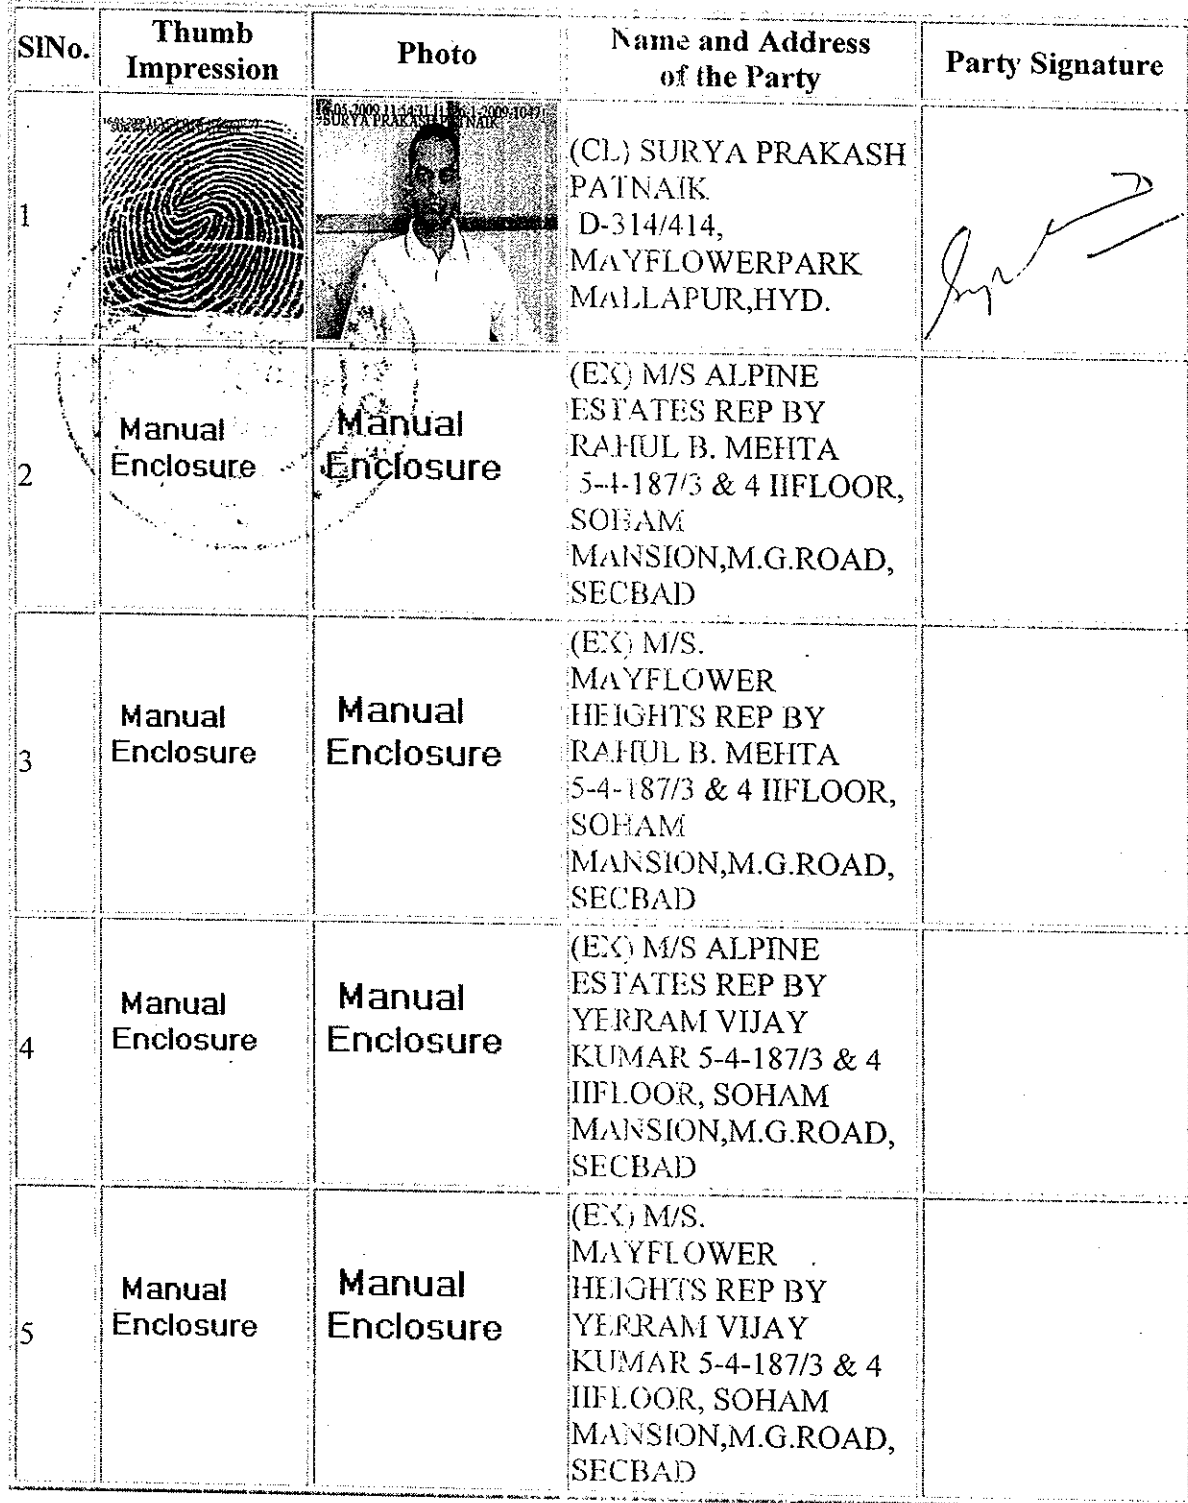 SlNo.
Thumb
Impression
Photo
Name and Address
of the Party
Party Signature
1
SURYA PRAKASH PATNAIK
(CL) SURYA PRAKASH
PATNAIK
D-314/414,
MAYFLOWERPARK
MALLAPUR,HYD.
2
Manual
Enclosure
Manual
Enclosure
(EX) M/S ALPINE
ESTATES REP BY
RAHUL B. MEHTA
5-4-187/3 & 4 IIFLOOR,
SOHAM
MANSION,M.G.ROAD,
SECBAD
3
Manual
Enclosure
Manual
Enclosure
(EX) M/S.
MAYFLOWER
HEIGHTS REP BY
RAHUL B. MEHTA
5-4-187/3 & 4 IIFLOOR,
SOHAM
MANSION,M.G.ROAD,
SECBAD
4
Manual
Enclosure
Manual
Enclosure
(EX) M/S ALPINE
ESTATES REP BY
YERRAM VIJAY
KUMAR 5-4-187/3 & 4
IIFLOOR, SOHAM
MANSION,M.G.ROAD,
SECBAD
5
Manual
Enclosure
Manual
Enclosure
(EX) M/S.
MAYFLOWER
HEIGHTS REP BY
YERRAM VIJAY
KUMAR 5-4-187/3 & 4
IIFLOOR, SOHAM
MANSION,M.G.ROAD,
SECBAD